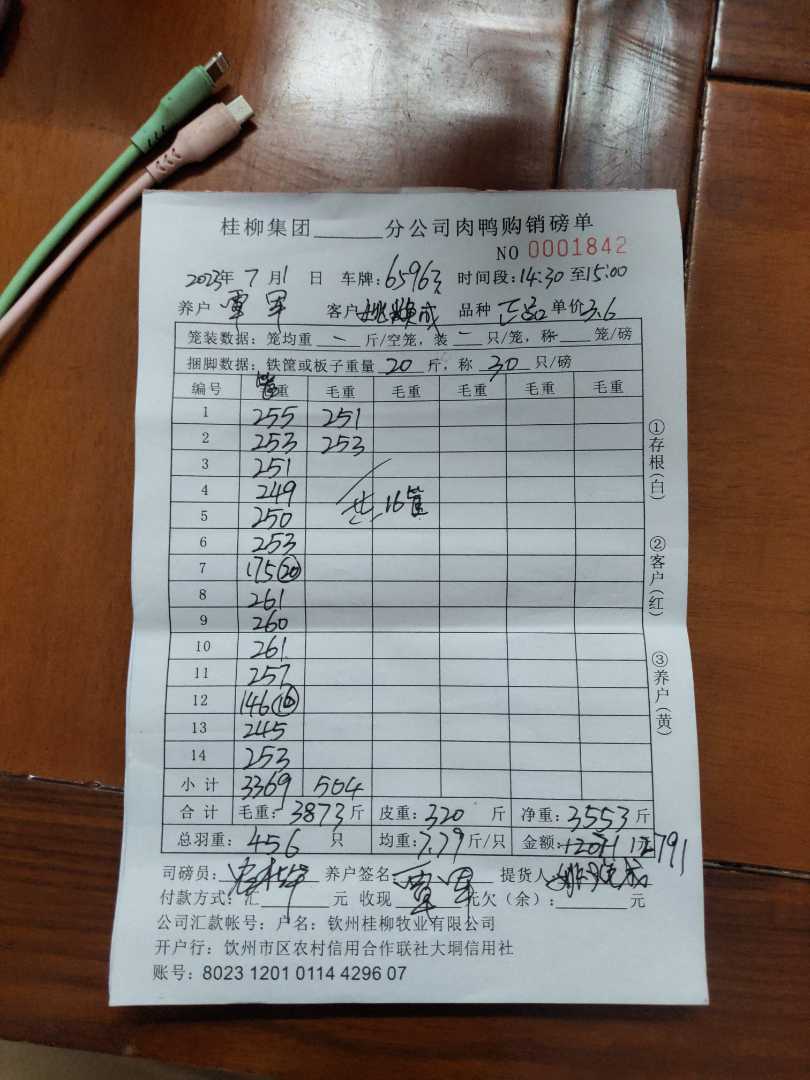 桂柳集团______分公司肉鸭购销磅单
NO 0001842
2023年 7 月 1 日 车牌:65963 时间段:14:30 至15:00
养户 覃军 客户 姚焕成 品种 正品 单价3.6
笼装数据:笼均重 — 斤/空笼,装 — 只/笼,称 — 笼/磅
捆脚数据:铁筐或板子重量 20 斤,称 30 只/磅
编号 重 毛重 毛重 毛重 毛重 毛重
1 255 251
2 253 253
3 251
4 249 共16筐
5 250
6 253
7 175(20)
8 261
9 260
10 261
11 257
12 146(16)
13 245
14 253
小计 3369 504
合计 毛重:3873斤 皮重:320 斤 净重:3553斤
总羽重:456 只 均重:7.79斤/只 金额: 12791
司磅员: 养户签名 覃军 提货人
付款方式:汇______元 收现______元欠(余):______元
公司汇款帐号:户名:钦州桂柳牧业有限公司
开户行:饮州市区农村信用合作联社大垌信用社
账号:8023 1201 0114 4296 07
①存根(白)
②客户(红)
③养户(黄)